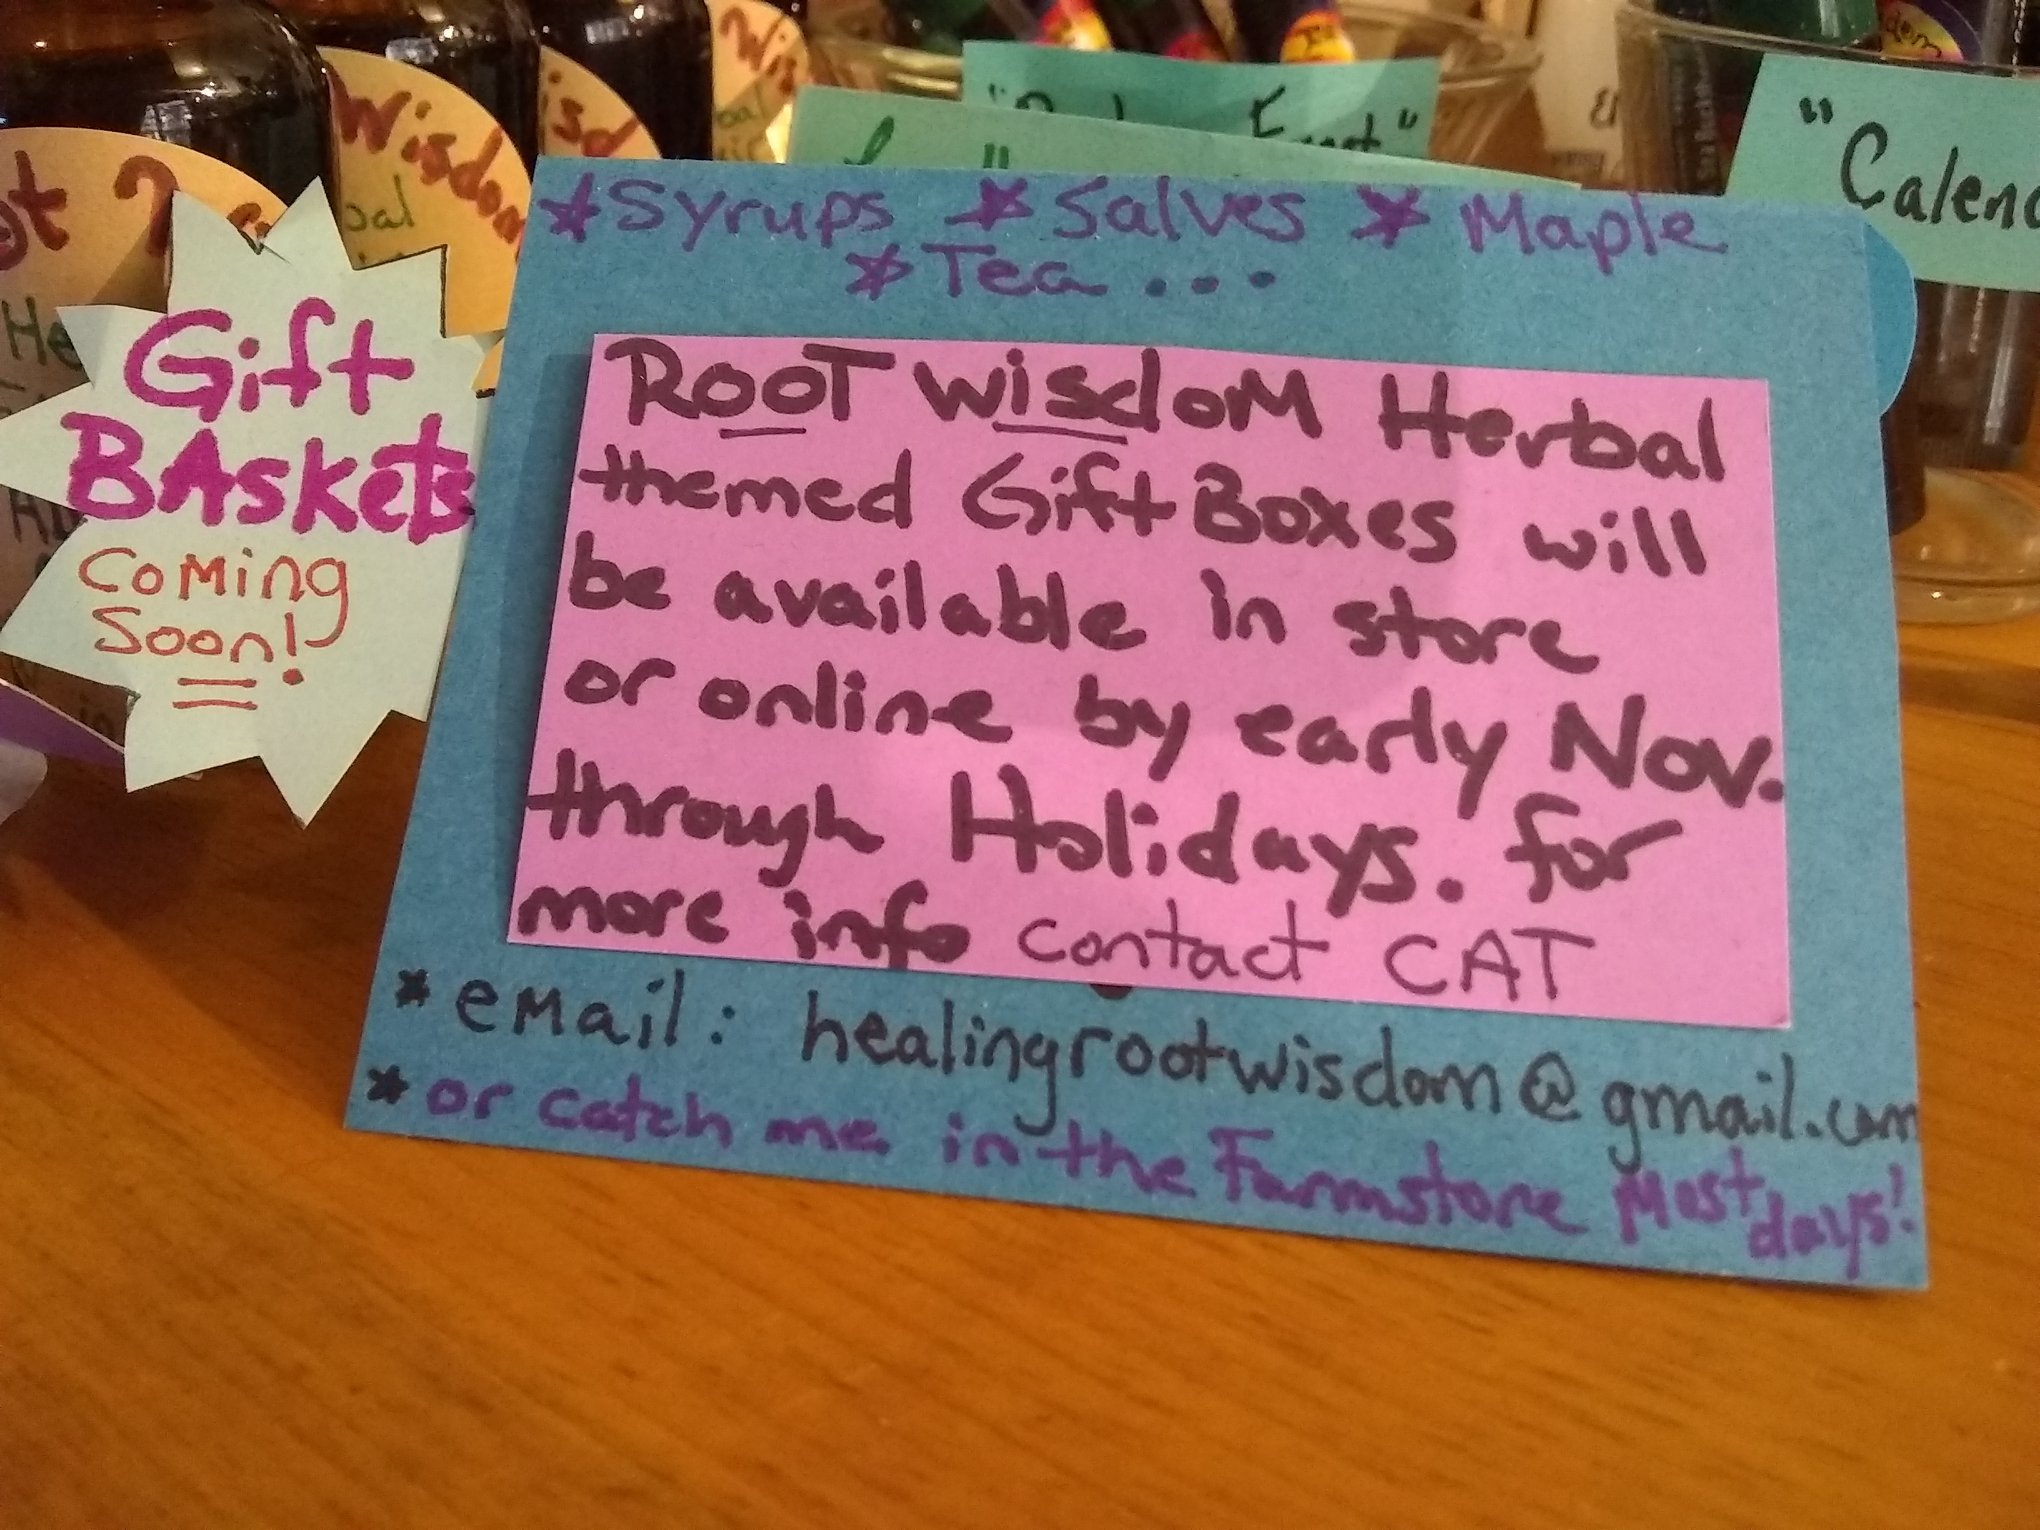 Wisdom
"Calen
*Syrups *Salves *Maple
*Tea...
Gift
BAskets
Coming
Soon!
ROOT WisdoM Herbal
themed Gift Boxes will
be available in store
or online by early Nov.
through Holidays. for
more info contact CAT
*eMail: healingrootwisdom@gmail.com
*or catch me in the Farmstore Most days!